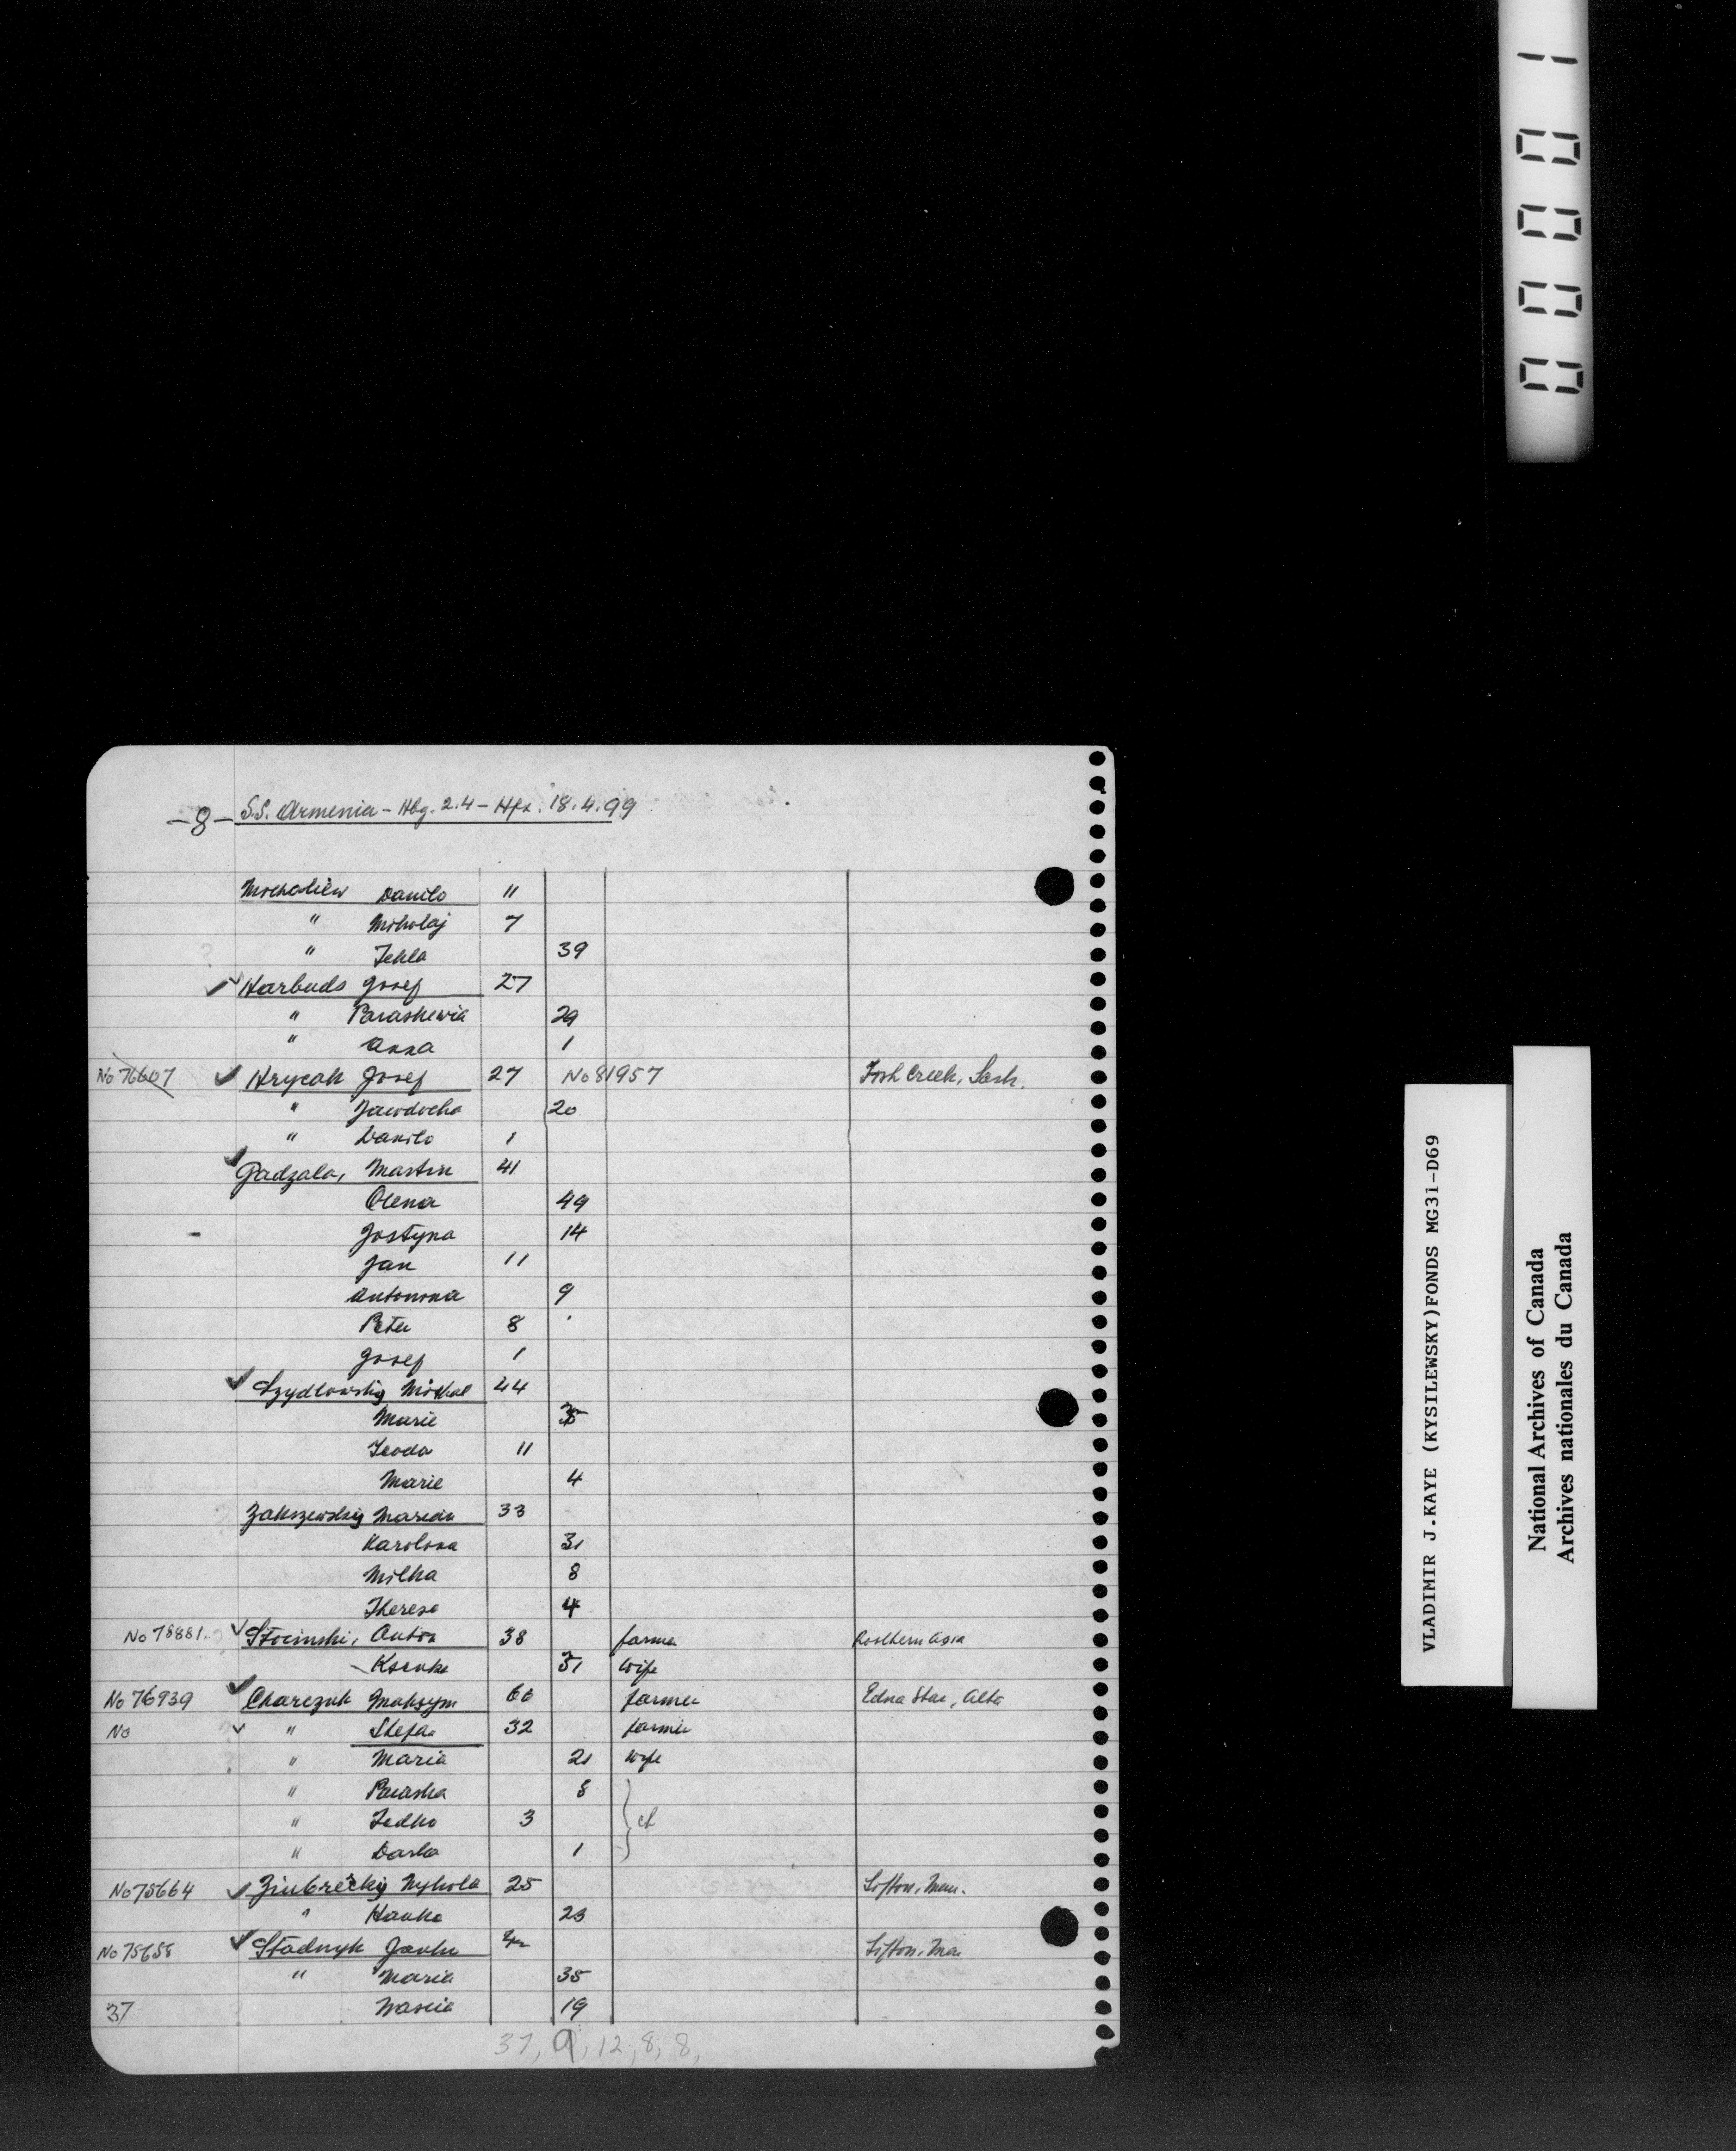 00001
-8- S.S. Armenia - Hbg. 2.4 - Hfx. 18.4.99
Danilo 11
" Mikolaj 7
" Tekla 39
Harbuds Josef 27
" Paraskewia 29
" Anna 1
No 76607 Hrycak Josef 27 No 81957 Fish Creek, Sask.
" Jawdocha 20
" Danilo 1
Gadzala, Martin 41
Olena 49
Jostyna 14
Jan 11
Antonina 9
Peter 8
Josef 1
Szydlowskij Michal 44
Marie
Teoda 11
Marie 4
Zakszewskij Marcin 33
Karolina 31
Milka 8
Therese 4
No 78881 Stocinski, Anton 38 farmer
Ksenka 31 wife
No 76939 Charczuk Maksym 66 farmer Edna Star, Alta
No " Stefan 32 farmer
" Maria 21 wife
" Paraska 8
" Fedko 3 ch
" Darka 1
No 75664 Mykola 25 Sifton, Man.
" Hanka 23
No 75658 Stadnyk Janko Sifton, Man
" Maria 35
37 Wascia 19
37, 9, 12, 8, 8,
VLADIMIR J.KAYE (KYSILEWSKY)FONDS MG31-D69
National Archives of Canada
Archives nationales du Canada